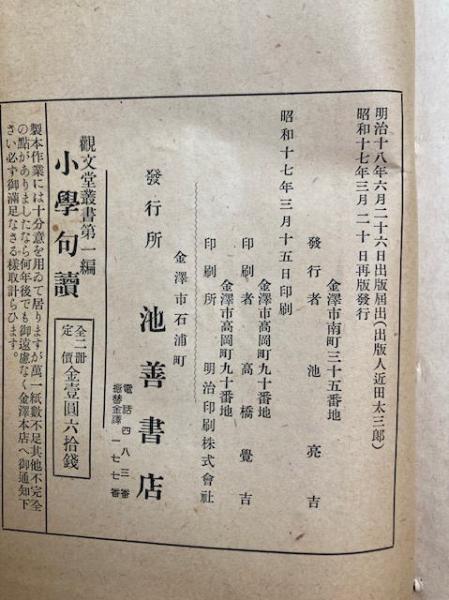 明治十八年六月二十六日出版屆出(出版人近田太三郎)
昭和十七年三月二十日再版發行
金澤市南町三十五番地
發行者 池亮吉
昭和十七年三月十五日印刷
金澤市高岡町九十番地
印刷者 高橋覺吉
金澤市高岡町九十番地
印刷所 明治印刷株式會社
金澤市石浦町
發行所 池善書店
電話四八三番
振替金澤一七七番
觀文堂叢書第一編
小學句讀
全二冊
定價金壹圓六拾錢
製本作業には十分意を用ゐて居りますが萬一紙數不足其他不完全
の點がありましたなら何年後でも御遠慮なく金澤本店へ御通知下
さい必ず御滿足なさる樣取計らひます。